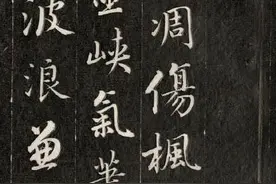 凋傷楓
巫峽氣蕭
波浪兼